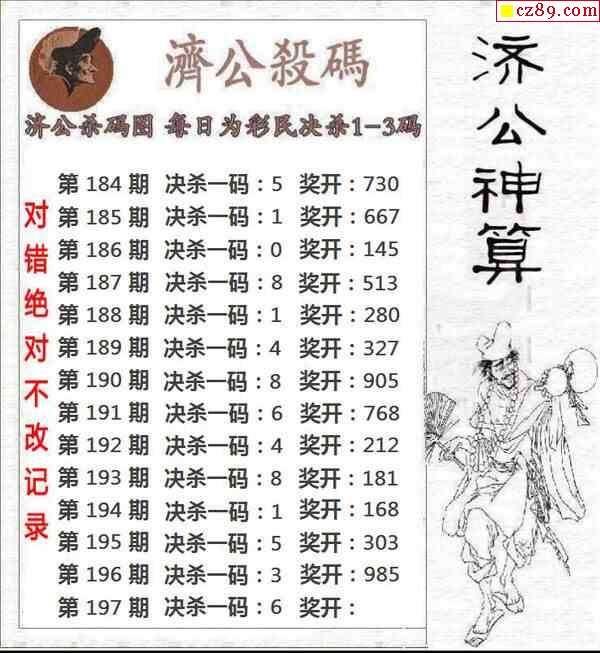 cz89.com
濟公殺碼
济公杀码图 每日为彩民决杀1-3码
第 184 期 决杀一码：5 奖开：730
第 185 期 决杀一码：1 奖开：667
第 186 期 决杀一码：0 奖开：145
第 187 期 决杀一码：8 奖开：513
第 188 期 决杀一码：1 奖开：280
第 189 期 决杀一码：4 奖开：327
第 190 期 决杀一码：8 奖开：905
第 191 期 决杀一码：6 奖开：768
第 192 期 决杀一码：4 奖开：212
第 193 期 决杀一码：8 奖开：181
第 194 期 决杀一码：1 奖开：168
第 195 期 决杀一码：5 奖开：303
第 196 期 决杀一码：3 奖开：985
第 197 期 决杀一码：6 奖开：
对错绝对不改记录
济公神算